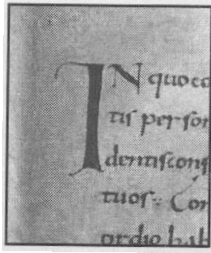 IN quo co
tis per son
dentis cons
tuos. Con
ordie hab